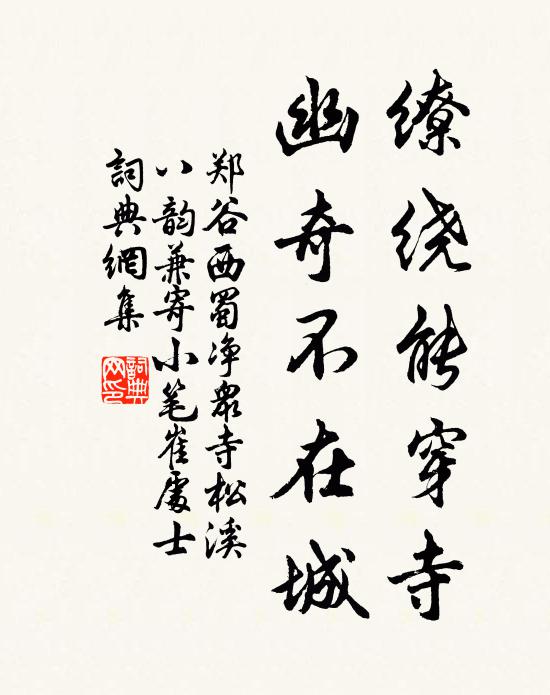 缭绕能穿寺
幽奇不在城
郑谷西蜀净众寺松溪
八韵兼寄小笔崔处士
詞典網集
詞典網印